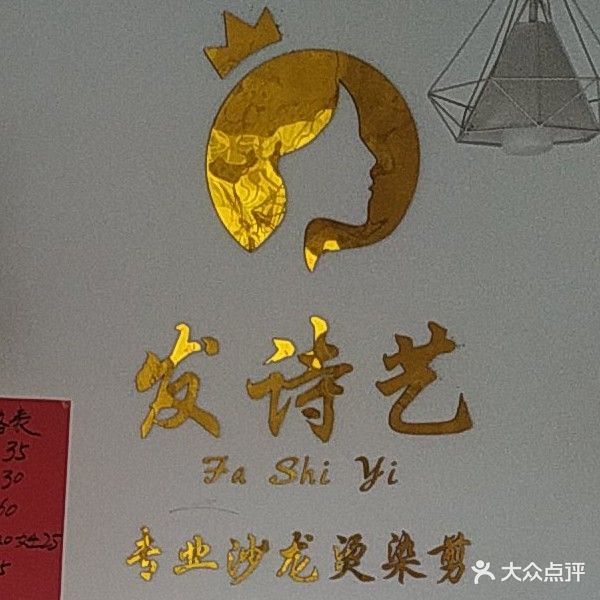 发诗艺
Fa Shi Yi
专业沙龙烫染剪
格表
35
30
60
大众点评